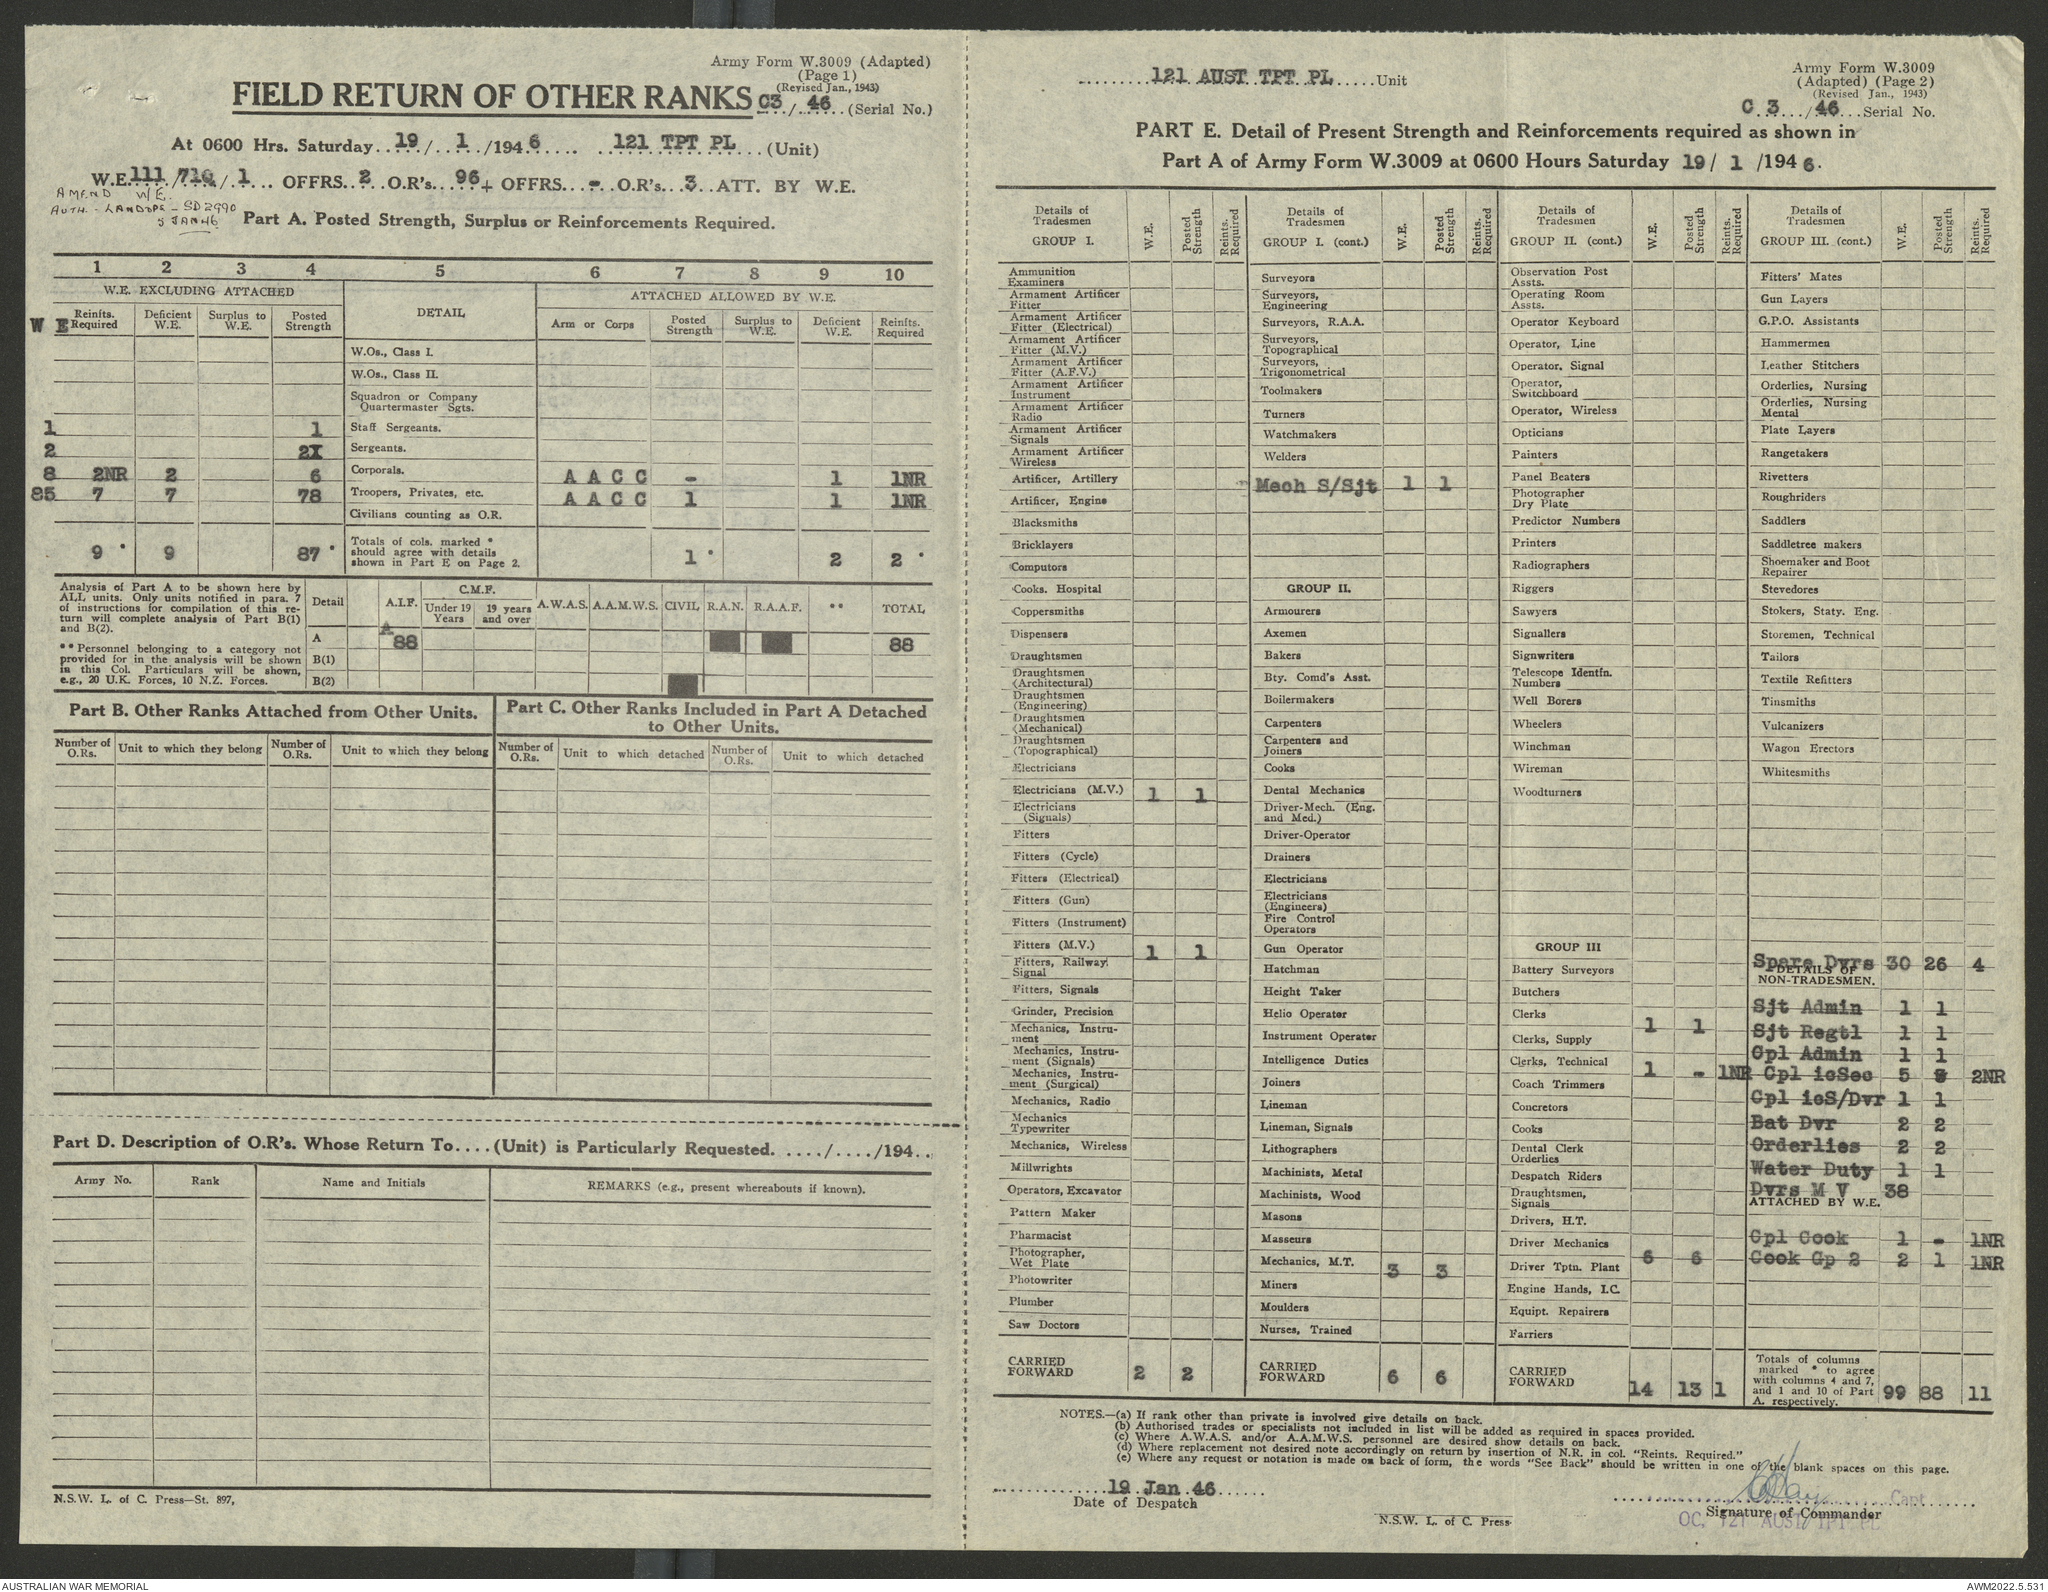 Army Form W.3009 (Adapted)
(Page 1)
(Revised Jan., 1943)
FIELD RETURN OF OTHER RANKS C3/46 (Serial No.)
At 0600 Hrs. Saturday 19/1/1946 121 TPT PL (Unit)
W.E. 111/71G/1 OFFRS. 2 O.R's. 96 + OFFRS. - O.R's. 3 ATT. BY W.E.
AMEND W/E.
AUTH. - LANDOPS - SD2990
5 JAN 46
Part A. Posted Strength, Surplus or Reinforcements Required.
1 2 3 4 5 6 7 8 9 10
W.E. EXCLUDING ATTACHED DETAIL ATTACHED ALLOWED BY W.E.
W E Reinfts. Required Deficient W.E. Surplus to W.E. Posted Strength Arm or Corps Posted Strength Surplus to W.E. Deficient W.E. Reinfts. Required
W.Os., Class I.
W.Os., Class II.
Squadron or Company
Quartermaster Sgts.
1 1 Staff Sergeants.
2 2X Sergeants.
8 2NR 2 6 Corporals. A A C C - 1 1NR
85 7 7 78 Troopers, Privates, etc. A A C C 1 1 1NR
Civilians counting as O.R.
9 * 9 87 * Totals of cols. marked * should agree with details shown in Part E on Page 2. 1 * 2 2 *
Analysis of Part A to be shown here by
ALL units. Only units notified in para. 7
of instructions for compilation of this re-
turn will complete analysis of Part B(1)
and B(2).
** Personnel belonging to a category not
provided for in the analysis will be shown
in this Col. Particulars will be shown,
e.g., 20 U.K. Forces, 10 N.Z. Forces.
Detail A.I.F. C.M.F. Under 19 Years 19 years and over A.W.A.S. A.A.M.W.S. CIVIL R.A.N. R.A.A.F. ** TOTAL
A 88 88
B(1)
B(2)
Part B. Other Ranks Attached from Other Units.
Number of O.Rs. Unit to which they belong Number of O.Rs. Unit to which they belong
Part C. Other Ranks Included in Part A Detached
to Other Units.
Number of O.Rs. Unit to which detached Number of O.Rs. Unit to which detached
Part D. Description of O.R's. Whose Return To....(Unit) is Particularly Requested. ...../..../194..
Army No. Rank Name and Initials REMARKS (e.g., present whereabouts if known).
N.S.W. L. of C. Press—St. 897,
121 AUST TPT PL Unit
Army Form W.3009
(Adapted) (Page 2)
(Revised Jan., 1943)
C 3/46 Serial No.
PART E. Detail of Present Strength and Reinforcements required as shown in
Part A of Army Form W.3009 at 0600 Hours Saturday 19/1/1946.
Details of Tradesmen GROUP I. W.E. Posted Strength Reints. Required
Ammunition Examiners
Armament Artificer Fitter
Armament Artificer Fitter (Electrical)
Armament Artificer Fitter (M.V.)
Armament Artificer Fitter (A.F.V.)
Armament Artificer Instrument
Armament Artificer Radio
Armament Artificer Signals
Armament Artificer Wireless
Artificer, Artillery
Artificer, Engine
Blacksmiths
Bricklayers
Computors
Cooks. Hospital
Coppersmiths
Dispensers
Draughtsmen
Draughtsmen (Architectural)
Draughtsmen (Engineering)
Draughtsmen (Mechanical)
Draughtsmen (Topographical)
Electricians
Electricians (M.V.) 1 1
Electricians (Signals)
Fitters
Fitters (Cycle)
Fitters (Electrical)
Fitters (Gun)
Fitters (Instrument)
Fitters (M.V.) 1 1
Fitters, Railway Signal
Fitters, Signals
Grinder, Precision
Mechanics, Instru-ment
Mechanics, Instru-ment (Signals)
Mechanics, Instru-ment (Surgical)
Mechanics, Radio
Mechanics Typewriter
Mechanics, Wireless
Millwrights
Operators, Excavator
Pattern Maker
Pharmacist
Photographer, Wet Plate
Photowriter
Plumber
Saw Doctors
CARRIED FORWARD 2 2
Details of Tradesmen GROUP I. (cont.) W.E. Posted Strength Reints. Required
Surveyors
Surveyors, Engineering
Surveyors, R.A.A.
Surveyors, Topographical
Surveyors, Trigonometrical
Toolmakers
Turners
Watchmakers
Welders
Mech S/Sjt 1 1
GROUP II.
Armourers
Axemen
Bakers
Bty. Comd's Asst.
Boilermakers
Carpenters
Carpenters and Joiners
Cooks
Dental Mechanics
Driver-Mech. (Eng. and Med.)
Driver-Operator
Drainers
Electricians
Electricians (Engineers)
Fire Control Operators
Gun Operator
Hatchman
Height Taker
Helio Operator
Instrument Operator
Intelligence Duties
Joiners
Lineman
Lineman, Signals
Lithographers
Machinists, Metal
Machinists, Wood
Masons
Masseurs
Mechanics, M.T. 3 3
Miners
Moulders
Nurses, Trained
CARRIED FORWARD 6 6
Details of Tradesmen GROUP II. (cont.) W.E. Posted Strength Reints. Required
Observation Post Assts.
Operating Room Assts.
Operator Keyboard
Operator, Line
Operator, Signal
Operator, Switchboard
Operator, Wireless
Opticians
Painters
Panel Beaters
Photographer Dry Plate
Predictor Numbers
Printers
Radiographers
Riggers
Sawyers
Signallers
Signwriters
Telescope Identfn. Numbers
Well Borers
Wheelers
Winchman
Wireman
Woodturners
GROUP III
Battery Surveyors
Butchers
Clerks 1 1
Clerks, Supply
Clerks, Technical 1 - 1NR
Coach Trimmers
Concretors
Cooks
Dental Clerk Orderlies
Despatch Riders
Draughtsmen, Signals
Drivers, H.T.
Driver Mechanics 6 6
Driver Tptn. Plant
Engine Hands, I.C.
Equipt. Repairers
Farriers
CARRIED FORWARD 14 13 1
Details of Tradesmen GROUP III. (cont.) W.E. Posted Strength Reints. Required
Fitters' Mates
Gun Layers
G.P.O. Assistants
Hammermen
Leather Stitchers
Orderlies, Nursing
Orderlies, Nursing Mental
Plate Layers
Rangetakers
Rivetters
Roughriders
Saddlers
Saddletree makers
Shoemaker and Boot Repairer
Stevedores
Stokers, Staty. Eng.
Storemen, Technical
Tailors
Textile Refitters
Tinsmiths
Vulcanizers
Wagon Erectors
Whitesmiths
Spare Dvrs 30 26 4
DETAILS OF NON-TRADESMEN.
Sjt Admin 1 1
Sjt Regtl 1 1
Cpl Admin 1 1
Cpl icSec 5 2NR
Cpl icS/Dvr 1 1
Bat Dvr 2 2
Orderlies 2 2
Water Duty 1 1
Dvrs M V 38
ATTACHED BY W.E.
Cpl Cook 1 - 1NR
Cook Gp 2 2 1 1NR
Totals of columns marked * to agree with columns 4 and 7, and 1 and 10 of Part A. respectively. 99 88 11
NOTES.—(a) If rank other than private is involved give details on back.
(b) Authorised trades or specialists not included in list will be added as required in spaces provided.
(c) Where A.W.A.S. and/or A.A.M.W.S. personnel are desired show details on back.
(d) Where replacement not desired note accordingly on return by insertion of N.R. in col. "Reints. Required."
(e) Where any request or notation is made on back of form, the words "See Back" should be written in one of the blank spaces on this page.
19 Jan 46
Date of Despatch
Capt
Signature of Commander
OC, 121 AUST TPT PL
N.S.W. L. of C. Press
AUSTRALIAN WAR MEMORIAL
AWM2022.5.531